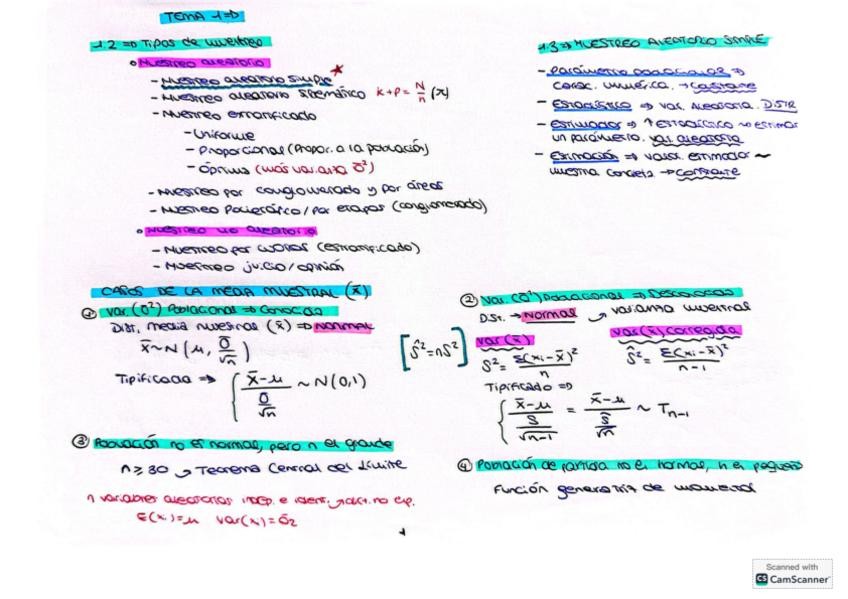 TEMA 1 ⇒
1.2 ⇒ Tipos de muestreo
• Muestreo aleatorio
- Muestreo aleatorio simple *
- Muestreo aleatorio sistemático k+p = N/n (x)
- Muestreo estratificado
- Uniforme
- Proporcional (Propor. a la población)
- Óptimo (más varianza σ²)
- Muestreo por conglomerado y por áreas
- Muestreo Polietápico/por etapas (conglomerado)
• Muestreo no aleatorio
- Muestreo por cuotas (estratificado)
- Muestreo juicio/opinión
1.3 ⇒ MUESTREO ALEATORIO SIMPLE
- Parámetro poblacional ⇒
carac. numérica. → constante
- Estadístico ⇒ var. Aleatoria. DISTR
- Estimador ⇒ ↑ Estadístico estimar
un parámetro. var. aleatoria
- Estimación ⇒ valor. estimador ~
muestra concreta → constante
CASOS DE LA MEDIA MUESTRAL (x̄)
① Var. (σ²) Poblacional ⇒ Conocida
Dist. media muestral (x̄) ⇒ NORMAL
x̄ ~ N (μ, σ/√n)
Tipificada ⇒ { (x̄-μ)/(σ/√n) ~ N(0,1)
② Var. (σ²) Poblacional ⇒ Desconocida
Dist. → Normal ↗ varianza muestral
[Ŝ² = nS²]
var(x̄)
S² = Σ(xi-x̄)²/n
var(x̄) corregida
Ŝ² = Σ(xi-x̄)²/(n-1)
Tipificado ⇒
{ (x̄-μ)/(S/√n-1) = (x̄-μ)/(Ŝ/√n) ~ Tn-1
③ Población no es normal, pero n es grande
n ≥ 30 → Teorema Central del Límite
n variables aleatorias indep. e ident. dist. no esp.
E(xi) = μ Var(xi) = σ2
④ Población de partida no es normal, n es pequeño
Función generatriz de momentos
1
Scanned with
CS CamScanner